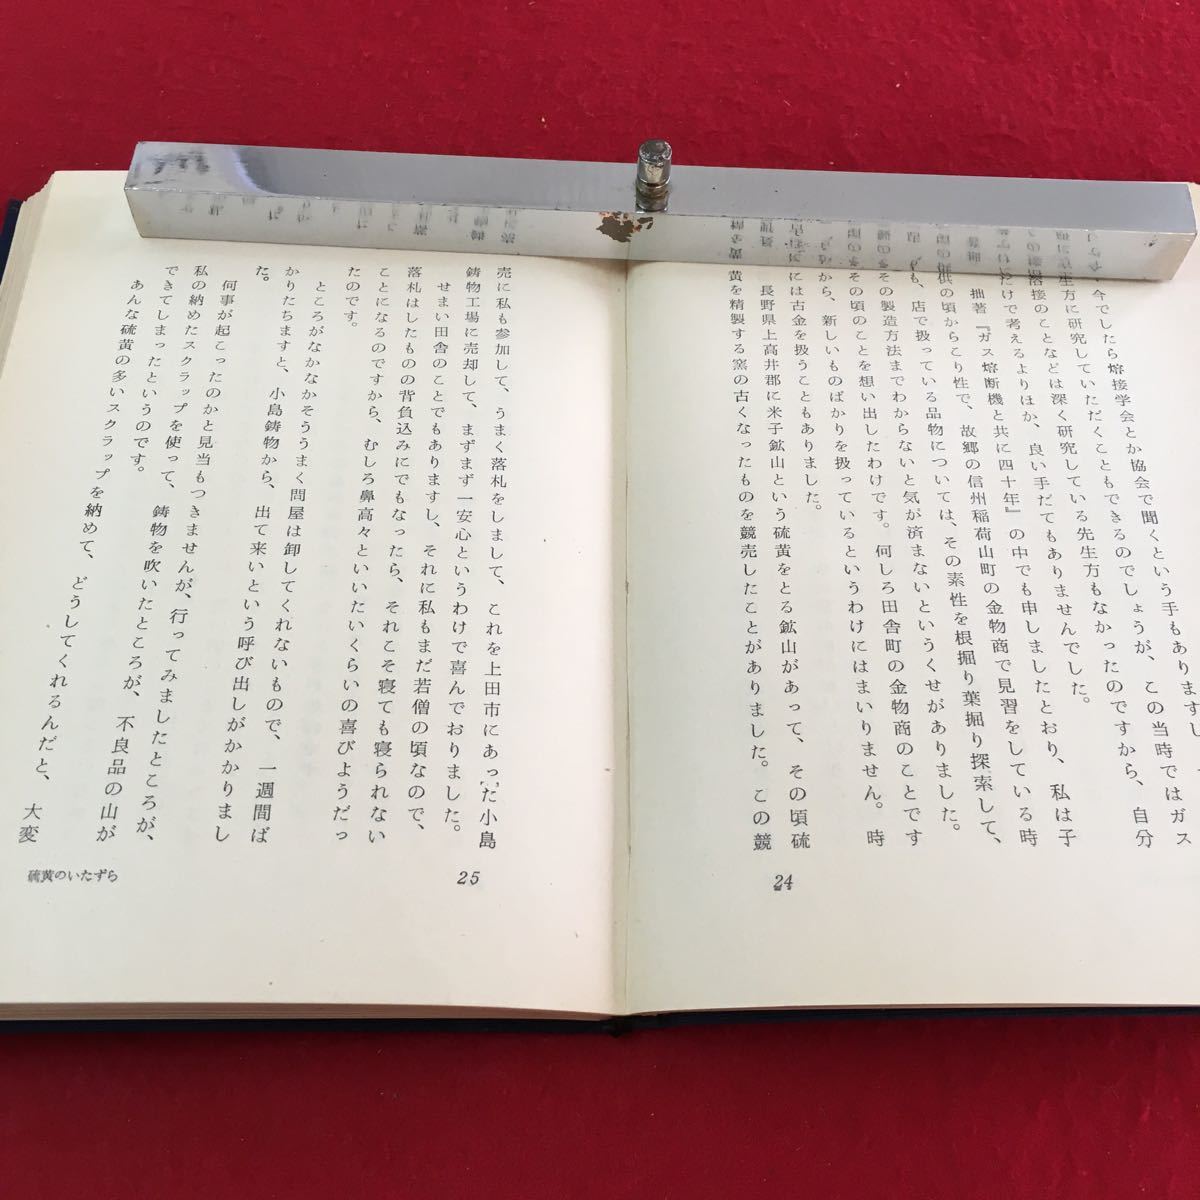 今でしたら熔接学会とか協会で聞くという手もありますし、
生方に研究していただくこともできるのでしょうが、この当時ではガス
熔接のことなどは深く研究している先生方もなかったのですから、自分
だけで考えるよりほか、良い手だてもありませんでした。
拙著『ガス熔断機と共に四十年』の中でも申しましたとおり、私は子
供の頃からこり性で、故郷の信州稲荷山町の金物商で見習をしている時
も、店で扱っている品物については、その素性を根掘り葉掘り探索して、
その製造方法までわからないと気が済まないというくせがありました。
その頃のことを想い出したわけです。何しろ田舎町の金物商のことです
から、新しいものばかりを扱っているというわけにはまいりません。時
には古金を扱うこともありました。
長野県上高井郡に米子鉱山という硫黄をとる鉱山があって、その頃硫
黄を精製する窯の古くなったものを競売したことがありました。この競
24
売に私も参加して、うまく落札をしまして、これを上田市にあった小島
鋳物工場に売却して、まずまず一安心というわけで喜んでおりました。
せまい田舎のことでもありますし、それに私もまだ若僧の頃なので、
落札はしたものの背負込みにでもなったら、それこそ寝ても寝られない
ことになるのですから、むしろ鼻高々といいたいくらいの喜びようだっ
たのです。
ところがなかなかそううまく問屋は卸してくれないもので、一週間ば
かりたちますと、小島鋳物から、出て来いという呼び出しがかかりまし
た。
何事が起こったのかと見当もつきませんが、行ってみましたところが、
私の納めたスクラップを使って、鋳物を吹いたところが、不良品の山が
できてしまったというのです。
あんな硫黄の多いスクラップを納めて、どうしてくれるんだと、大変
25
硫黄のいたずら